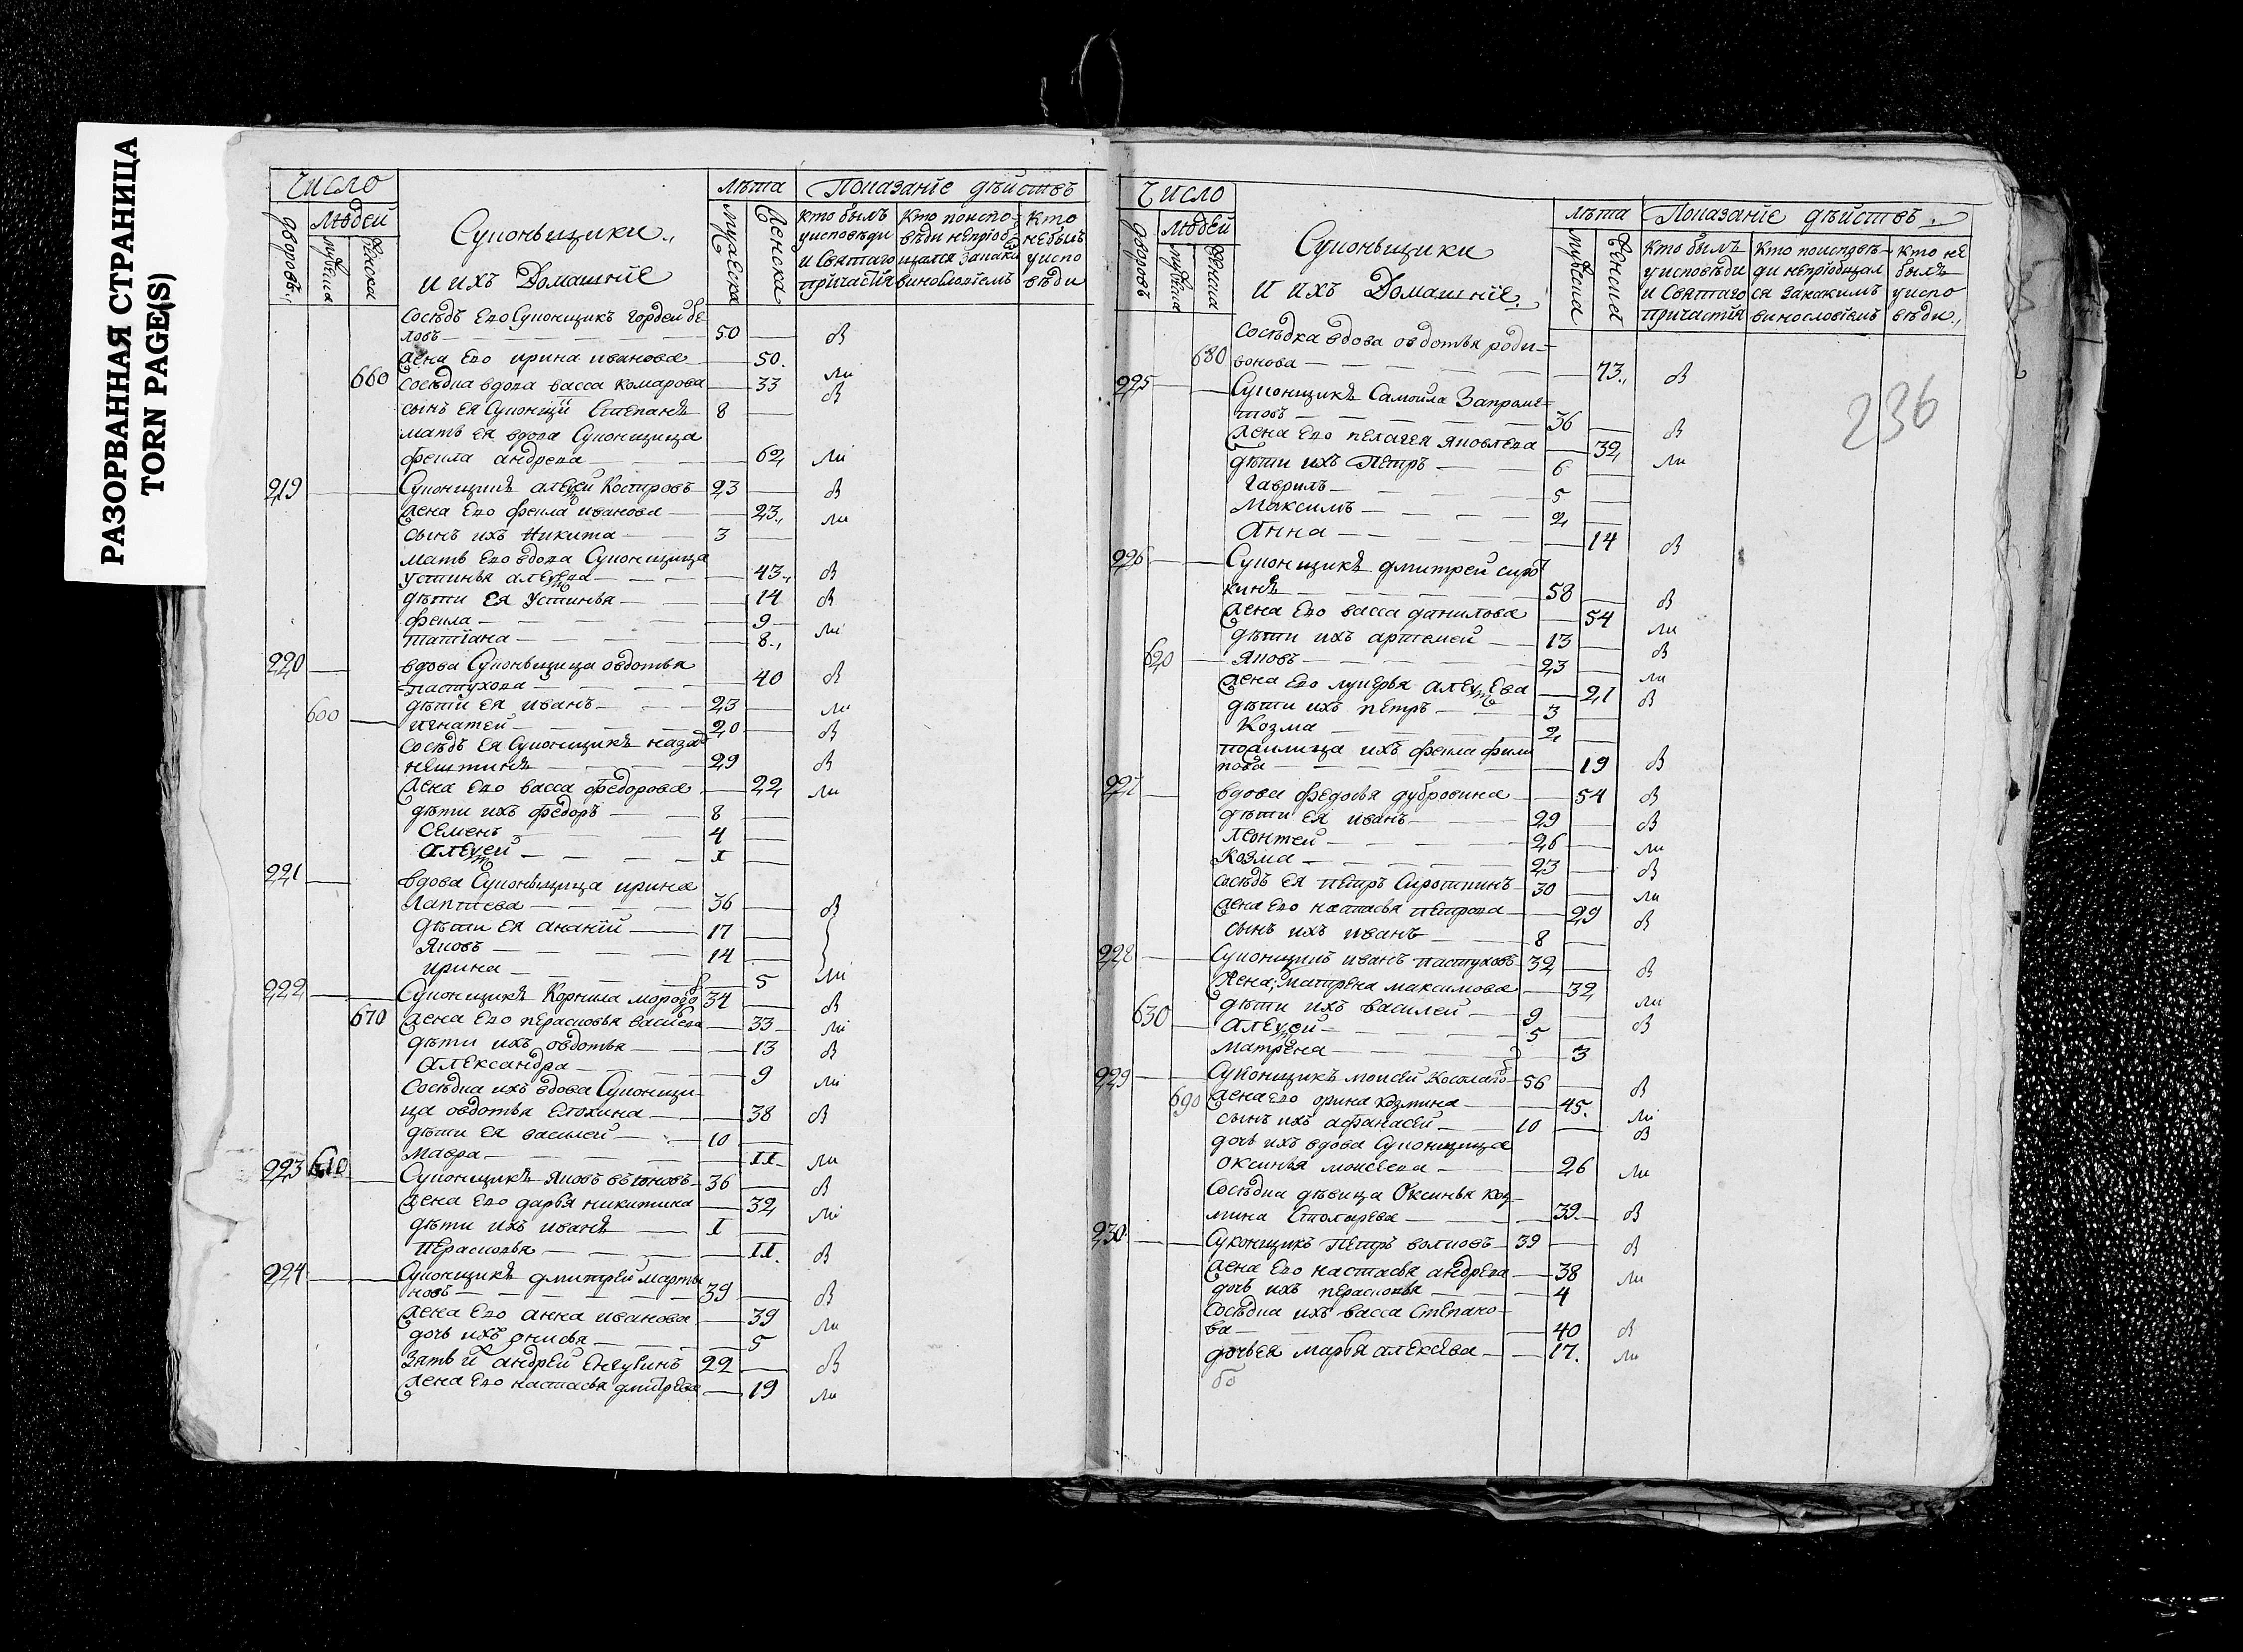 РАЗОРВАННАЯ СТРАНИЦА
TORN PAGE(S)
Число
людей
дворовъ.
мужеска
женска
Суконьщики.,
и ихъ Домашнїе
лѣта
мужеска
женска
Показанїе дѣйствъ
кто былъ у исповѣди и Святаго причастїя
Кто по исповѣди не прїобщался за каким винословїемъ
Кто не былъ у исповѣди
Сосѣдъ Его Суконщикъ гордей бе-
ловъ — 50 — В
Жена Его ирина иванова — 50. ли
660 Сосѣдка вдова васса комарова — 33 В
сынъ ея Суконщи Степанъ 8 —
мать ея вдова Суконщица
фекла андреева — 62 ли
219 Суконщикъ алеѯей Костровъ 23 — В
Жена Его фекла иванова — 23., ли
сынъ ихъ Никита — 3 —
мать Его вдова Суконщица
устинья алеѯева — 43., В
дѣти Ея Устинья — 14 В
фекла — 9
татїана — 8., ли
220 вдова Суконьщица овдотья
пастухова — 40 В
дѣти Ея иванъ — 23 — ли
600 игнатей — 20 — В
Сосѣдъ Ея Суконщикъ назаръ
нештинъ — 29 — В
Жена Его васса федорова — 22 ли
дѣти ихъ федоръ — 8 —
Семенъ — 4 —
Алеѯей — 1 —
221 вдова Суконьщица ирина
Лаптева — 36 — В
дѣти Ея ананїй — 17 —
Яковъ — 14 —
ирина — 5 ли
222 Суконщикъ Корнила морозо 34 — В
670 Жена Его перасковья васильева — 33 ли
дѣти ихъ овдотья — 13 В
Александра — 9 ли
Сосѣдка ихъ вдова Суконщи-
ца овдотья Елохина — 38 В
дѣти Ея василей — 10 —
мавра — 11 ли
223 610 Суконщикъ Яковъ 36 — В
Жена Его дарья никитина — 32 ли
дѣти ихъ иванъ — 1 —
Перасковья — 11. В
224 Суконщикъ дмитрей марты
новъ — 39 — В
Жена Его анна иванова — 39 ли
дочь ихъ онисья — 5
Зять и андрей 22 — В
Жена Его настасья дмитрева — 19 ли
Число
людей
дворовъ
мужеска
женска
Суконьщики
и ихъ Домашнїе.
лѣта
мужеска
женска
Показанїе дѣйствъ.
кто былъ у исповѣди и Святаго причастїя
кто по исповѣди не прїобщался за какимъ винословїемъ
кто не былъ у исповѣди.,
236
Сосѣдка вдова овдотья роди-
680 вонова — 73., В
225 Суконщикъ Самойла Запроме-
товъ — 36 — В
Жена Его пелагея яковлева — 32 ли
дѣти ихъ Петръ — 6 —
гаврилъ — 5 —
Максимъ — 2 —
Анна — 14 В
226 Суконщикъ дмитрей сиро
кинъ — 58 — В
Жена Его васса данилова — 54 ли
дѣти ихъ артемей — 13 — В
620 Яковъ — 23 — ли
Жена Его лукерья алеѯеева — 21 В
дѣти ихъ петръ — 3 —
Козма — 2 —
ихъ фекла фили
пова — 19 В
227 вдова федосья дубровина — 54 В
дѣти ея иванъ — 29 — В
леонтей — 26 — ли
Козма — 23 — В
сосѣдъ ея петръ Сироткинъ 30 — ли
Жена Его настасья петрова — 29 В
сынъ ихъ иванъ — 8 —
228 Суконщикъ иванъ пастуховъ 32 — В
Жена, матрена максимова — 32 ли
630 дѣти ихъ василей — 9 — В
алеѯей — 5 —
Матрена — 3
229 Суконщикъ моисей 56 — В
690 Жена Его орина козмина — 45. ли
сынъ ихъ афанасей — 10 — В
дочь ихъ вдова Суконщица
оксинья моисеева — 26 ли
Сосѣдка дѣвица Оксинья коз-
мина Столярева — 39 В
230 Суконщикъ Петръ волковъ 39 — В
Жена Его настасья андреева — 38 ли
дочь ихъ перасковья — 4
Сосѣдка ихъ васса Степано-
ва — 40 В
дочь ея марья алексѣва — 17. ли